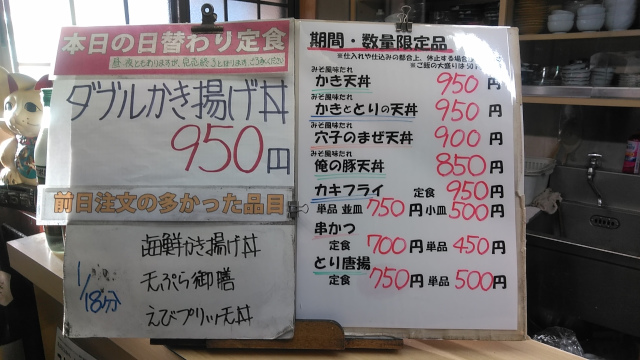 本日の日替わり定食
ダブルかき揚げ丼
950円
前日注文の多かった品目
1/18分
海鮮かき揚げ丼
天ぷら御膳
えびプリッツ天丼
期間・数量限定品
※仕入れや仕込みの都合上、休止する場合
※ご飯の大盛りは50
みそ風味だれ
かき天丼 950円
みそ風味だれ
かきととりの天丼 950円
みそ風味だれ
穴子のまぜ天丼 900円
みそ風味だれ
俺の豚天丼 850円
カキフライ 定食 950円
単品 並皿 750円 小皿 500円
串かつ
定食 700円 単品 450円
とり唐揚
定食 750円 単品 500円